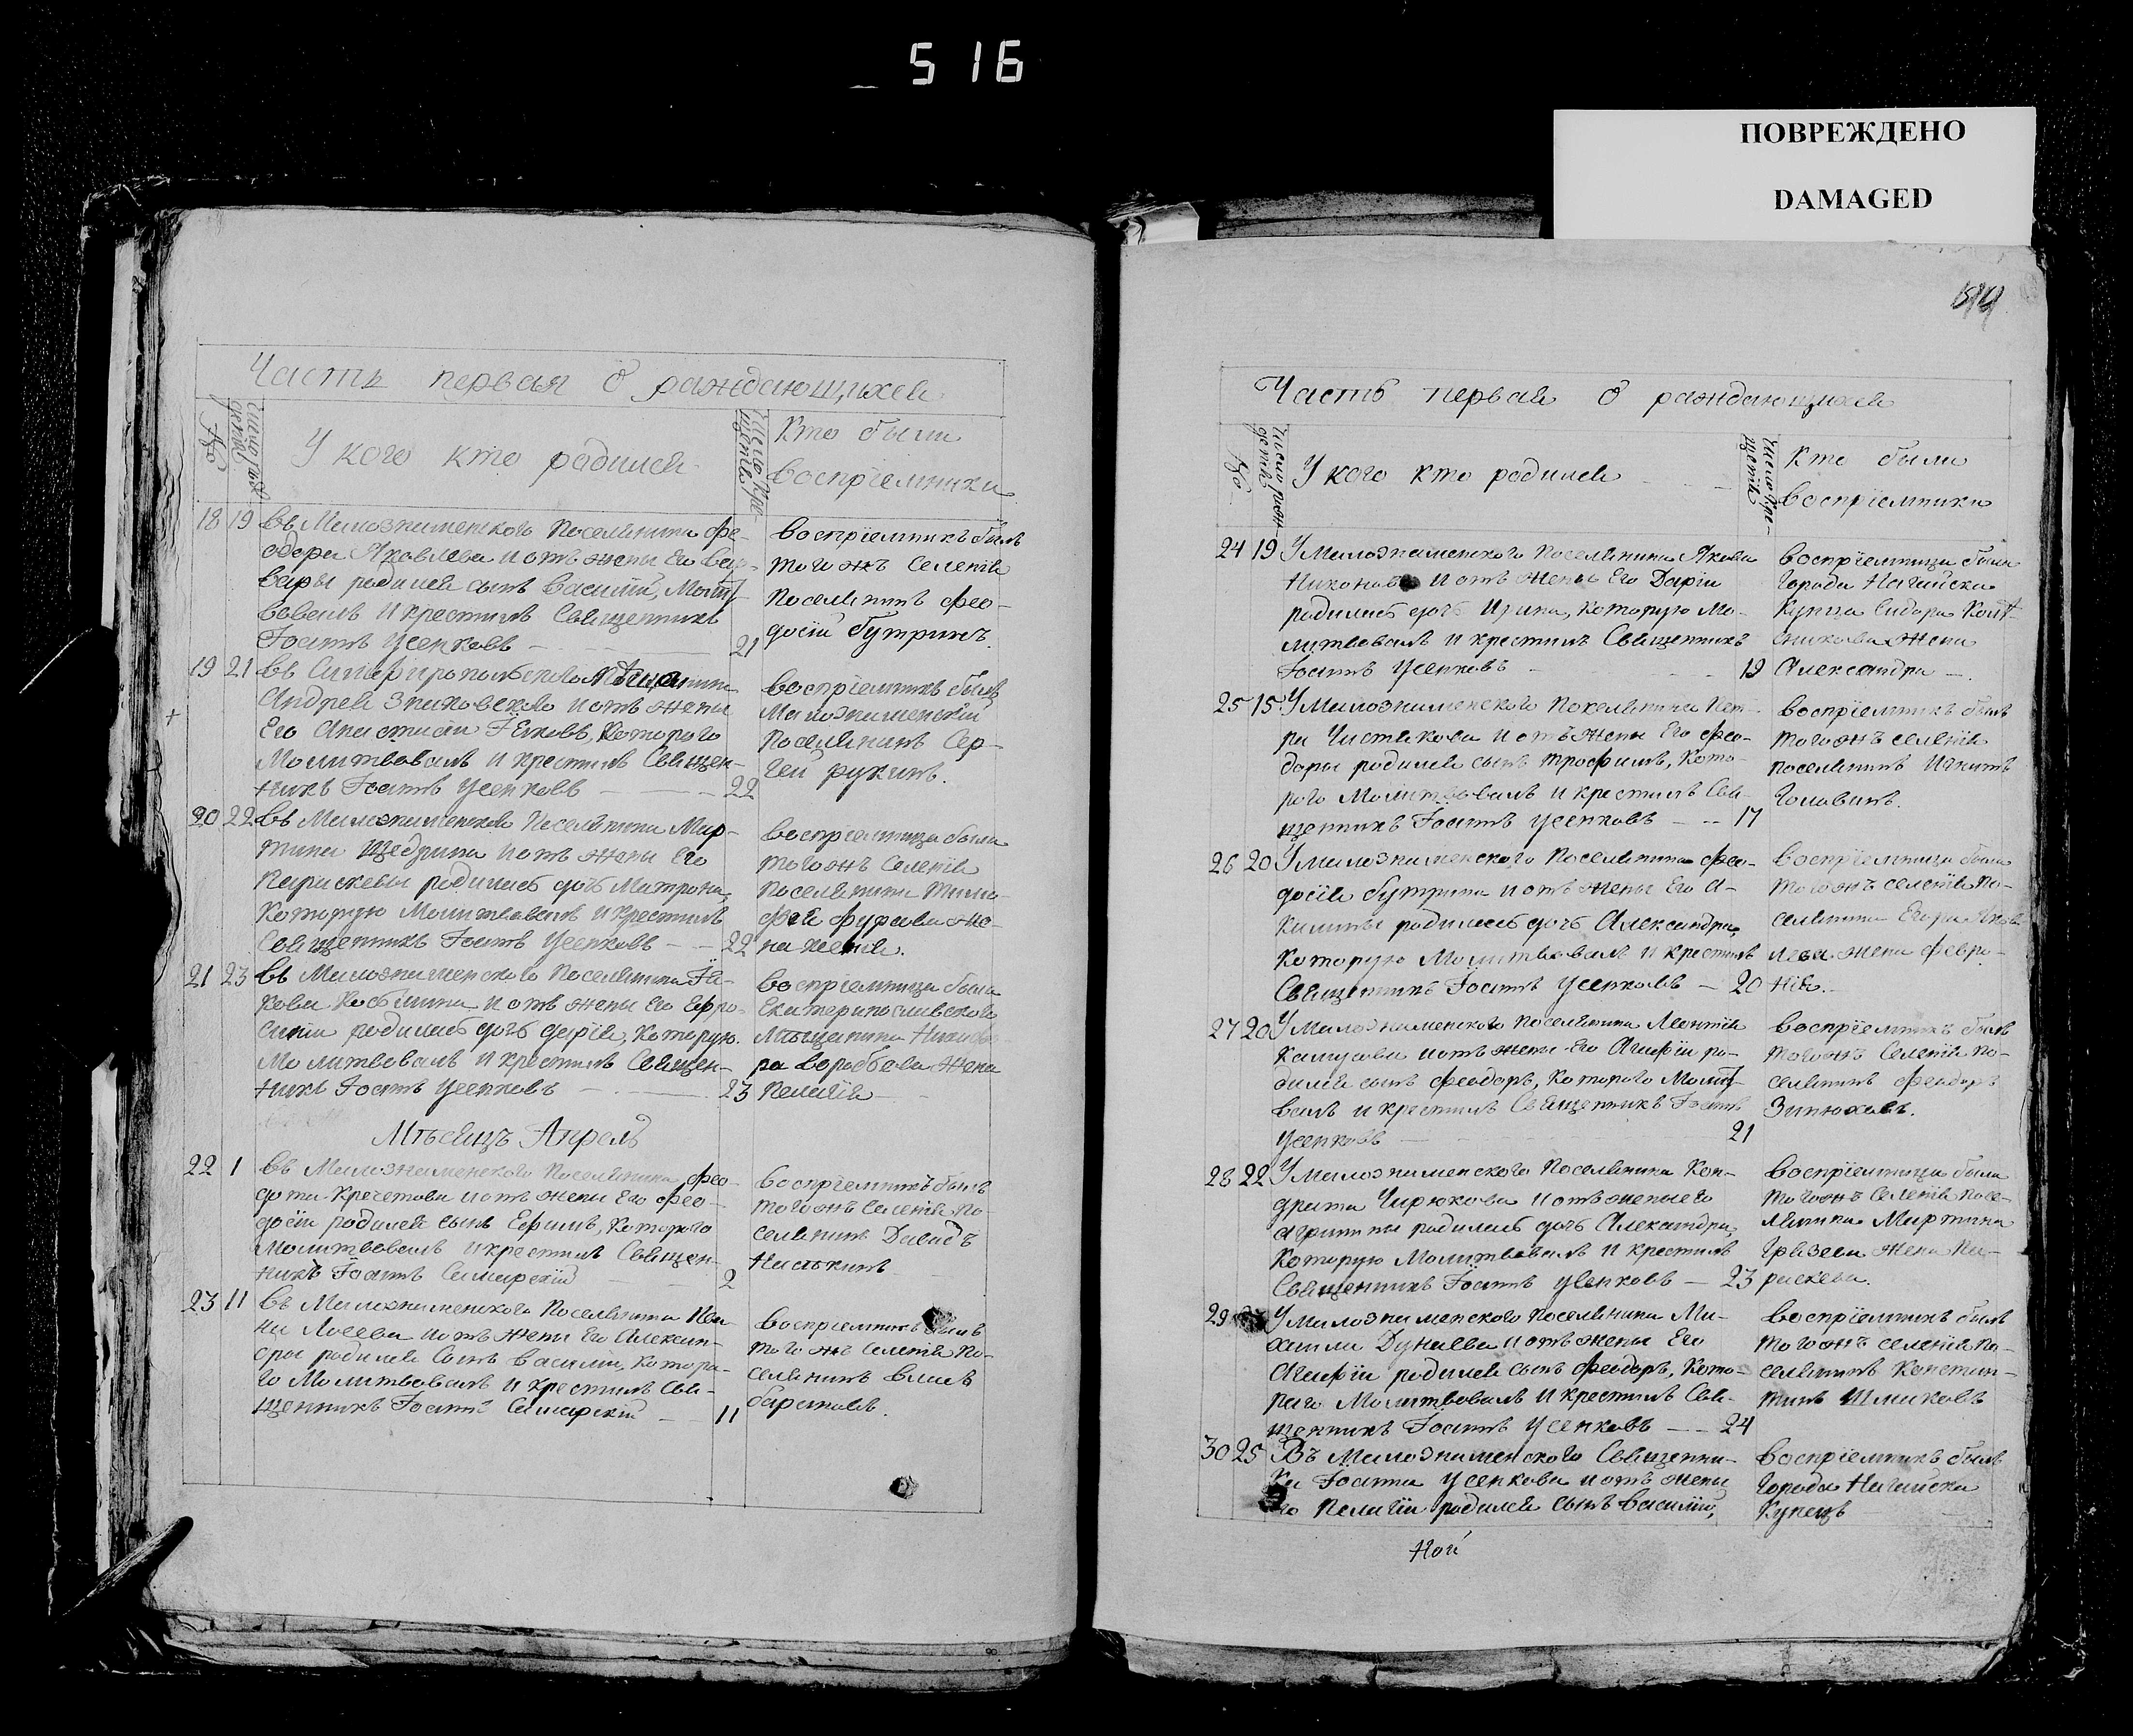 516
ПОВРЕЖДЕНО
DAMAGED
Часть первая о раждающихся
№
число рождетя
У кого кто родился
число крещентя
Кто были
воспрїемники
18 19 въ Малознаменского Поселянина Фе-
одора Яковлева и отъ жены Его Вар-
вары родился сынъ Василїй, Молит-
вовалъ и крестилъ Священникъ
Іоаннъ Усенковъ 21
воспрїемникъ былъ
того жъ Селенія
поселянинъ Фео-
досїй Бутринъ.
19 21 въ Симферопольского Мѣщанина
Андрея Зниковского и отъ жены
Его Анастасіи Яковъ, Которого
Молитвовалъ и крестилъ Священ-
никъ Іоаннъ Усенковъ 22
воспрїемникъ былъ
Малознаменскїй
Поселянинъ Сер-
гей Рукинъ.
20 22 въ Малознаменского Поселянина Мар-
тина Щедрина и отъ жены Его
Параскевы родилась дочь Матрона,
Которую Молитвовалъ и крестилъ
Священникъ Іоаннъ Усенковъ 22
воспрїемница была
того жъ Селенія
Поселянина Тимо-
фея Фурсова же-
на Ксенія.
21 23 въ Малознаменского Поселянина Я-
кова и отъ жены Его Ефро-
синіи родилась дочь Дарїя, Которую
Молитвовалъ и крестилъ Священ-
никъ Іоаннъ Усенковъ 23
воспрїемница была
Екатеринославского
Мѣщанина Никифо-
ра Воробьева Жена
Пелагїя
Мѣсяцъ Апрель
22 1 въ Малознаменского Поселянина Фео-
дота Кречетова и отъ жены Его Фео-
досїи родился сынъ Ефимъ, Которого
Молитвовалъ и крестилъ Священ-
никъ Іоаннъ Самарскїй 2
воспрїемникъ былъ
того жъ Селенія По-
селянинъ Давидъ
23 11 въ Малознаменского Поселянина Ива-
на Лосева и отъ жены Его Алексан-
дры родился сынъ Василїй, Котора-
го Молитвовалъ и крестилъ Свя-
щенникъ Іоаннъ Самарскїй 11
воспрїемникъ былъ
того жъ Селенія По-
селянинъ Власъ
Барановъ.
Часть первая о раждающихся
№
число рождетя
У кого кто родился
число крещентя
Кто были
воспрїемники
24 19 У Малознаменского Поселянина Якова
Никонова и отъ жены Его Дарїи
родилась дочь Ирина, Которую Мо-
литвовалъ и крестилъ Священникъ
Іоаннъ Усенковъ 19
воспрїемница была
Города Нагайска
Купца Сидора
Жена
Александра
25 15 У Малознаменского Поселянина Пет-
ра Чистякова и отъ жены Его Фео-
доры родился сынъ Трофимъ, Кото-
рого Молитвовалъ и крестилъ Свя-
щенникъ Іоаннъ Усенковъ 17
воспрїемникъ былъ
того жъ селенія
поселянинъ Игнатъ
Головинъ.
26 20 У Малознаменского Поселянина Фео-
досїя Бутрина и отъ жены Его А-
килины родилась дочь Александра,
Которую Молитвовалъ и крестилъ
Священникъ Іоаннъ Усенковъ 20
воспрїемница была
того жъ селенія По-
селянина Егора Яков-
лева жена Февро-
нія.
27 20 У Малознаменского Поселянина Леонтїя
и отъ жены Его Агафїи ро-
дился сынъ Феодоръ, Которого Молит-
валъ и крестилъ Священникъ Іоаннъ
Усенковъ 21
воспрїемникъ былъ
того жъ Селенія По-
селянинъ Феодоръ
Зинюховъ.
28 22 У Малознаменского Поселянина Кон-
драта Чирюкова и отъ жены его
Агрипины родилась дочь Александра,
Которую Молитвовалъ и крестилъ
Священникъ Іоаннъ Усенковъ 23
воспрїемница была
того жъ Селенія Посе-
лянина Мартина
Грязева жена Па-
раскева.
29 У Малознаменского Поселянина Ми-
хаила Дунаева и отъ жены Его
Агафїи родился сынъ Феодоръ, Кото-
раго Молитвовалъ и крестилъ Свя-
щенникъ Іоаннъ Усенковъ 24
воспрїемникъ былъ
того жъ селенія По-
селянинъ Констан-
тинъ Шмаковъ
30 25 Въ Малознаменского Священни-
ка Іоанна Усенкова и отъ жены
Его Пелагїи родился сынъ Василїй,
воспрїемникъ былъ
Города Нагайска
Купецъ
Ной